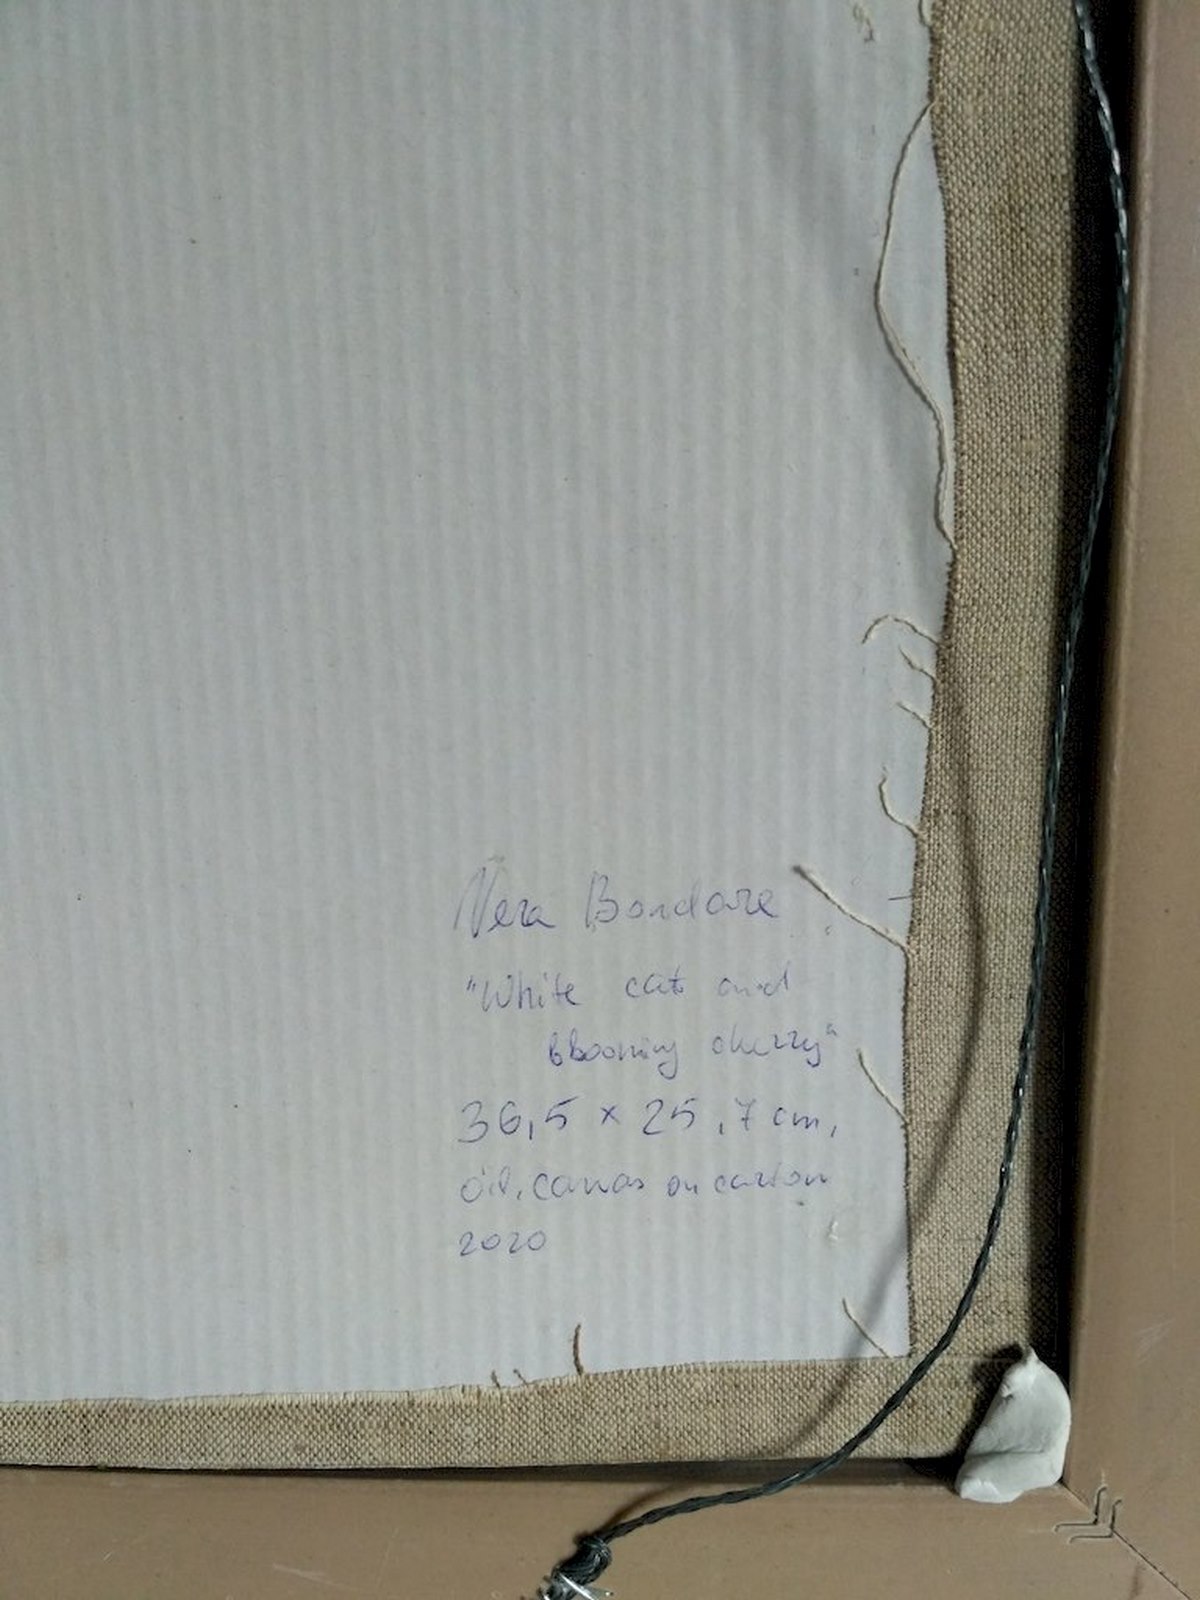 Vera Bondare
"White cat and
blooming cherry"
36,5 x 25,7 cm,
oil, canvas on carton
2020